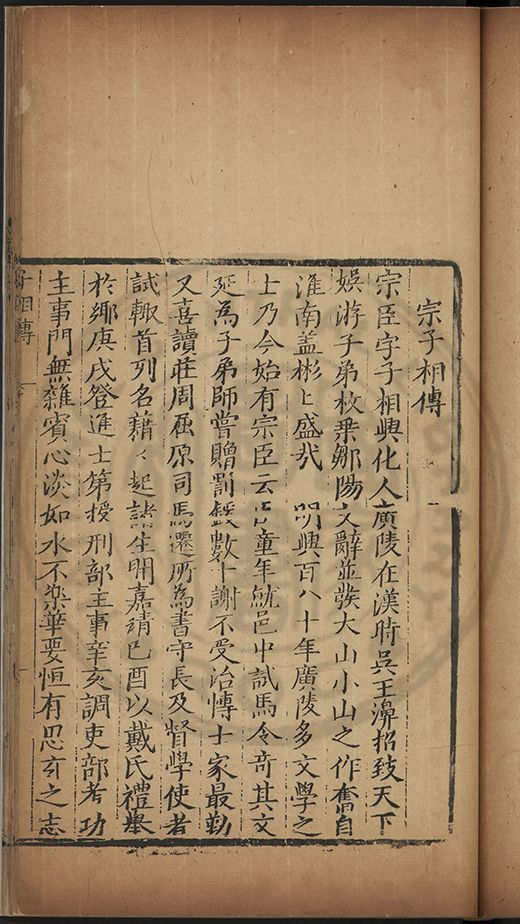 宗子相傳
宗臣字子相興化人廣陵在漢時吳王濞招致天下
娛游子弟枚乗鄒陽文辭並發大山小山之作奮自
淮南盖彬〻盛哉　明興百八十年廣陵多文學之
士乃今始有宗臣云臣童年就邑中試馬令奇其文
延為子弟師嘗贈罰鍰數十謝不受治博士家最勤
又喜讀莊周屈原司馬遷所為書守長及督學使者
試輙首列名藉〻起諸生間嘉靖己酉以戴氏禮舉
於鄉庚戌登進士第授刑部主事辛亥調吏部考功
主事門無雜賓心淡如水不樂華要恒有思玄之志
子相傳